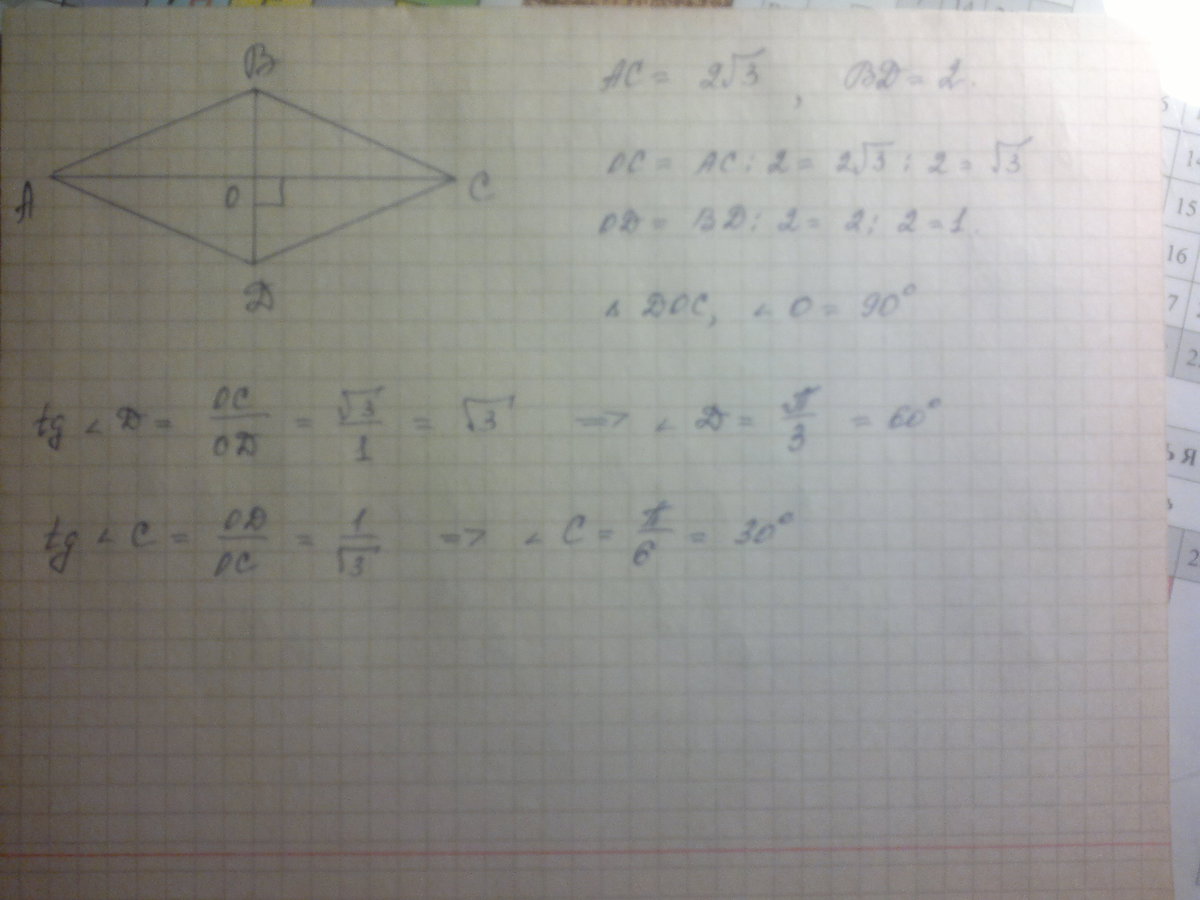 B
A
O
C
D
AC = 2√3, BD = 2.
OC = AC : 2 = 2√3 : 2 = √3
OD = BD : 2 = 2 : 2 = 1.
△ DOC, ∠ O = 90°
tg ∠ D = OC/OD = √3/1 = √3 => ∠ D = π/3 = 60°
tg ∠ C = OD/OC = 1/√3 => ∠ C = π/6 = 30°
15
16
7
ЬЯ